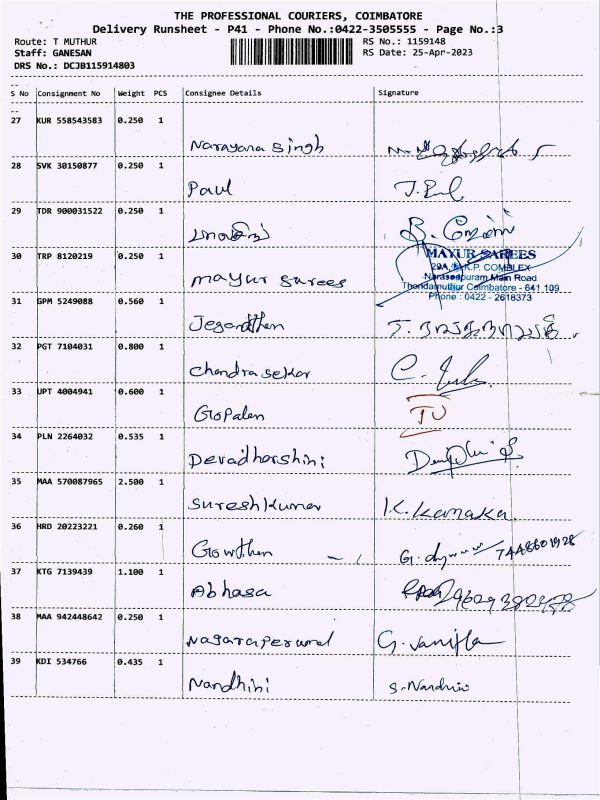 THE PROFESSIONAL COURIERS, COIMBATORE
Delivery Runsheet - P41 - Phone No.:0422-3505555 - Page No.:3
Route: T MUTHUR RS No.: 1159148
Staff: GANESAN RS Date: 25-Apr-2023
DRS No.: DCJB115914803
S No Consignment No Weight PCS Consignee Details Signature
27 KUR 558543583 0.250 1
Narayana Singh
28 SVK 30150877 0.250 1
Paul
29 TDR 900031522 0.250 1
30 TRP 8120219 0.250 1
mayur Sarees
MAYUR SAREES
Naraseepuram Main Road
Thondamuthur Coimbatore - 641 109
Phone : 0422 - 2618373
31 GPM 5249088 0.560 1
32 PGT 7104031 0.800 1
Chandrasekar
33 UPT 4004941 0.600 1
Gopalan
34 PLN 2264032 0.535 1
Devadharshini
35 MAA 570087965 2.500 1
Sureshkumar K. Kanaka
36 HRD 20223221 0.260 1
Gowthan 7448601928
37 KTG 7139439 1.100 1
Abhasa
38 MAA 942448642 0.250 1
Nagaraperumal G. Vanitha
39 KDI 534766 0.435 1
Nandhini